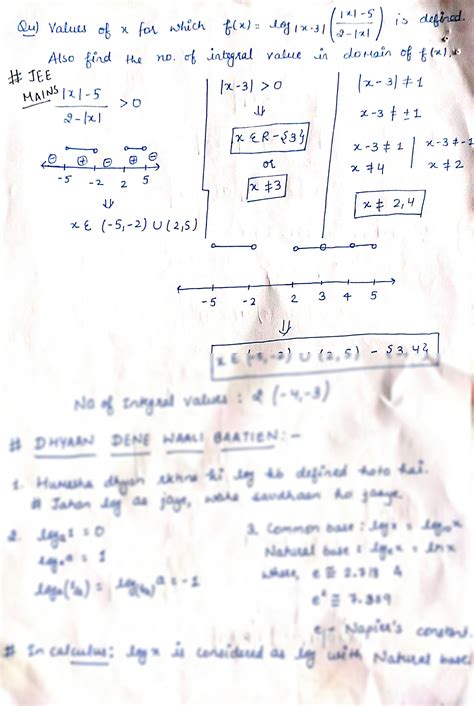 Qu) Values of x for which f(x) = log|x-3| (|x|-5 / 2-|x|) is defined.
Also find the no. of integral value in domain of f(x).
# JEE MAINS
|x|-5 / 2-|x| > 0
⊖ ⊕ ⊖ ⊕ ⊖
-5 -2 2 5
⇓
x ε (-5,-2) ∪ (2,5)
|x-3| > 0
⇓
x ε R - {3}
or
x ≠ 3
|x-3| ≠ 1
x-3 ≠ ±1
x-3 ≠ 1 | x-3 ≠ -1
x ≠ 4 | x ≠ 2
x ≠ 2,4
-5 -2 2 3 4 5
⇓
x ε (-5,-2) ∪ (2,5) - {3,4}
No of Integral values : 2 (-4,-3)
# DHYAAN DENE WAALI BAATIEN : -
1. Humesha dhyan rkhna ki log kb defined hota hai.
# Jahan log aa jaye, waha savdhaan ho jaaye.
2. logₐ1 = 0
logₐa = 1
logₐ(1/a) = log(1/a) a = -1
3. Common base : log x = log₁₀x
Natural base : logₑx = ln x
where, e ≅ 2.718 &
e² ≅ 7.389
e - Napier's constant.
# In calculus : log x is considered as log with Natural base